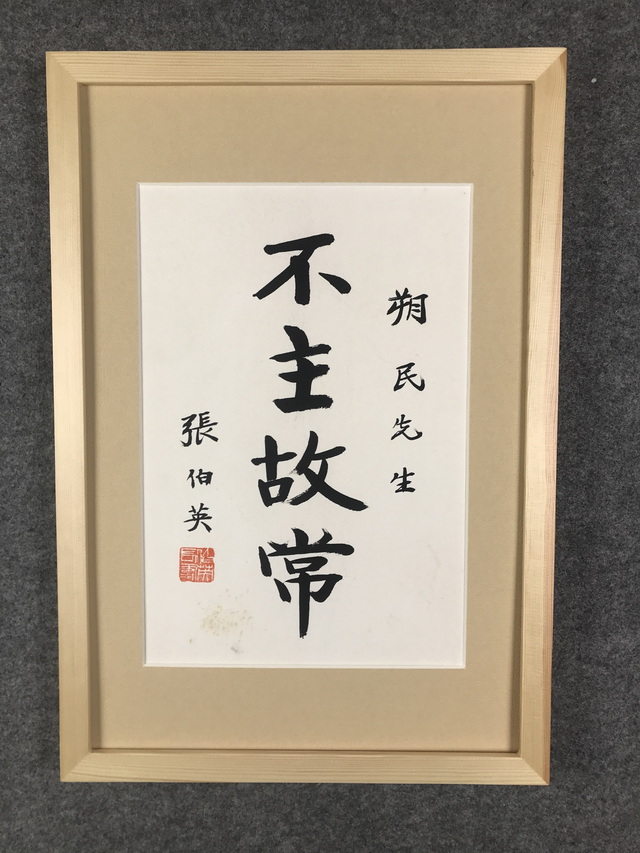 朔民先生
不主故常
張伯英